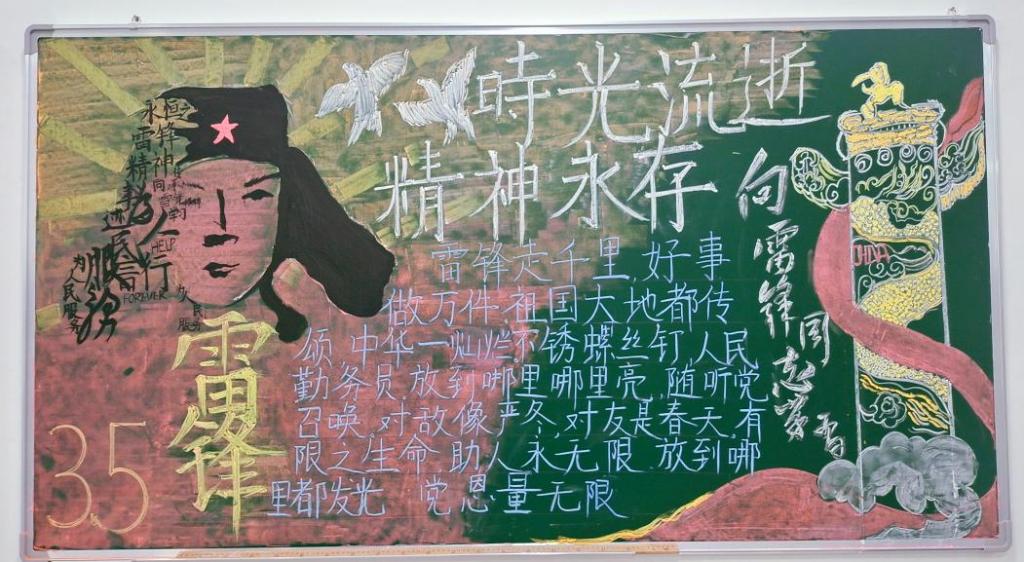 時光流逝
精神永存
向雷锋同志学习
雷锋走千里,好事
做万件.祖国大地都传
颂.中华一灿烂不锈螺丝钉,人民
勤务员.放到哪里哪里亮.随听党
召唤.对敌像严冬,对友是春天.有
限之生命.助人永无限.放到哪
里都发光 党恩量无限
雷锋
3.5
永恒
雷锋
精神
为人民服务
HELP
FOREVER
为人民服务
CHINA